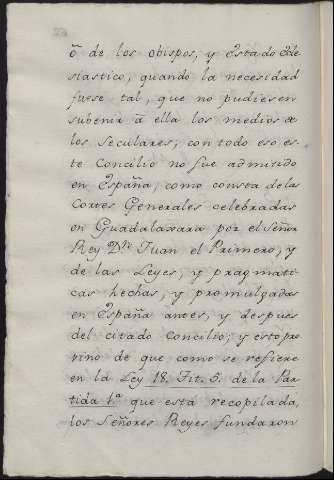 õ de los obispos, y estado Ecle
siastico, quando la necesidad
fuese tal, que no pudiesen
subenir à ella los medios de
los Seculares; con todo eso es-
te Concilio no fue admitido
en España, como consta de las
Cortes Generales celebradas
en Guadalaxara por el Señor
Rey Dn. Juan el Primero, y
de las Leyes, y pragmati-
cas hechas, y promulgadas
en España antes, y despues
del citado Concilio; y esto pro
vino de que como se refiere
en la Ley 18. Tit. 5. de la Par
tida 1.a que està recopilada,
los Señores Reyes fundaron